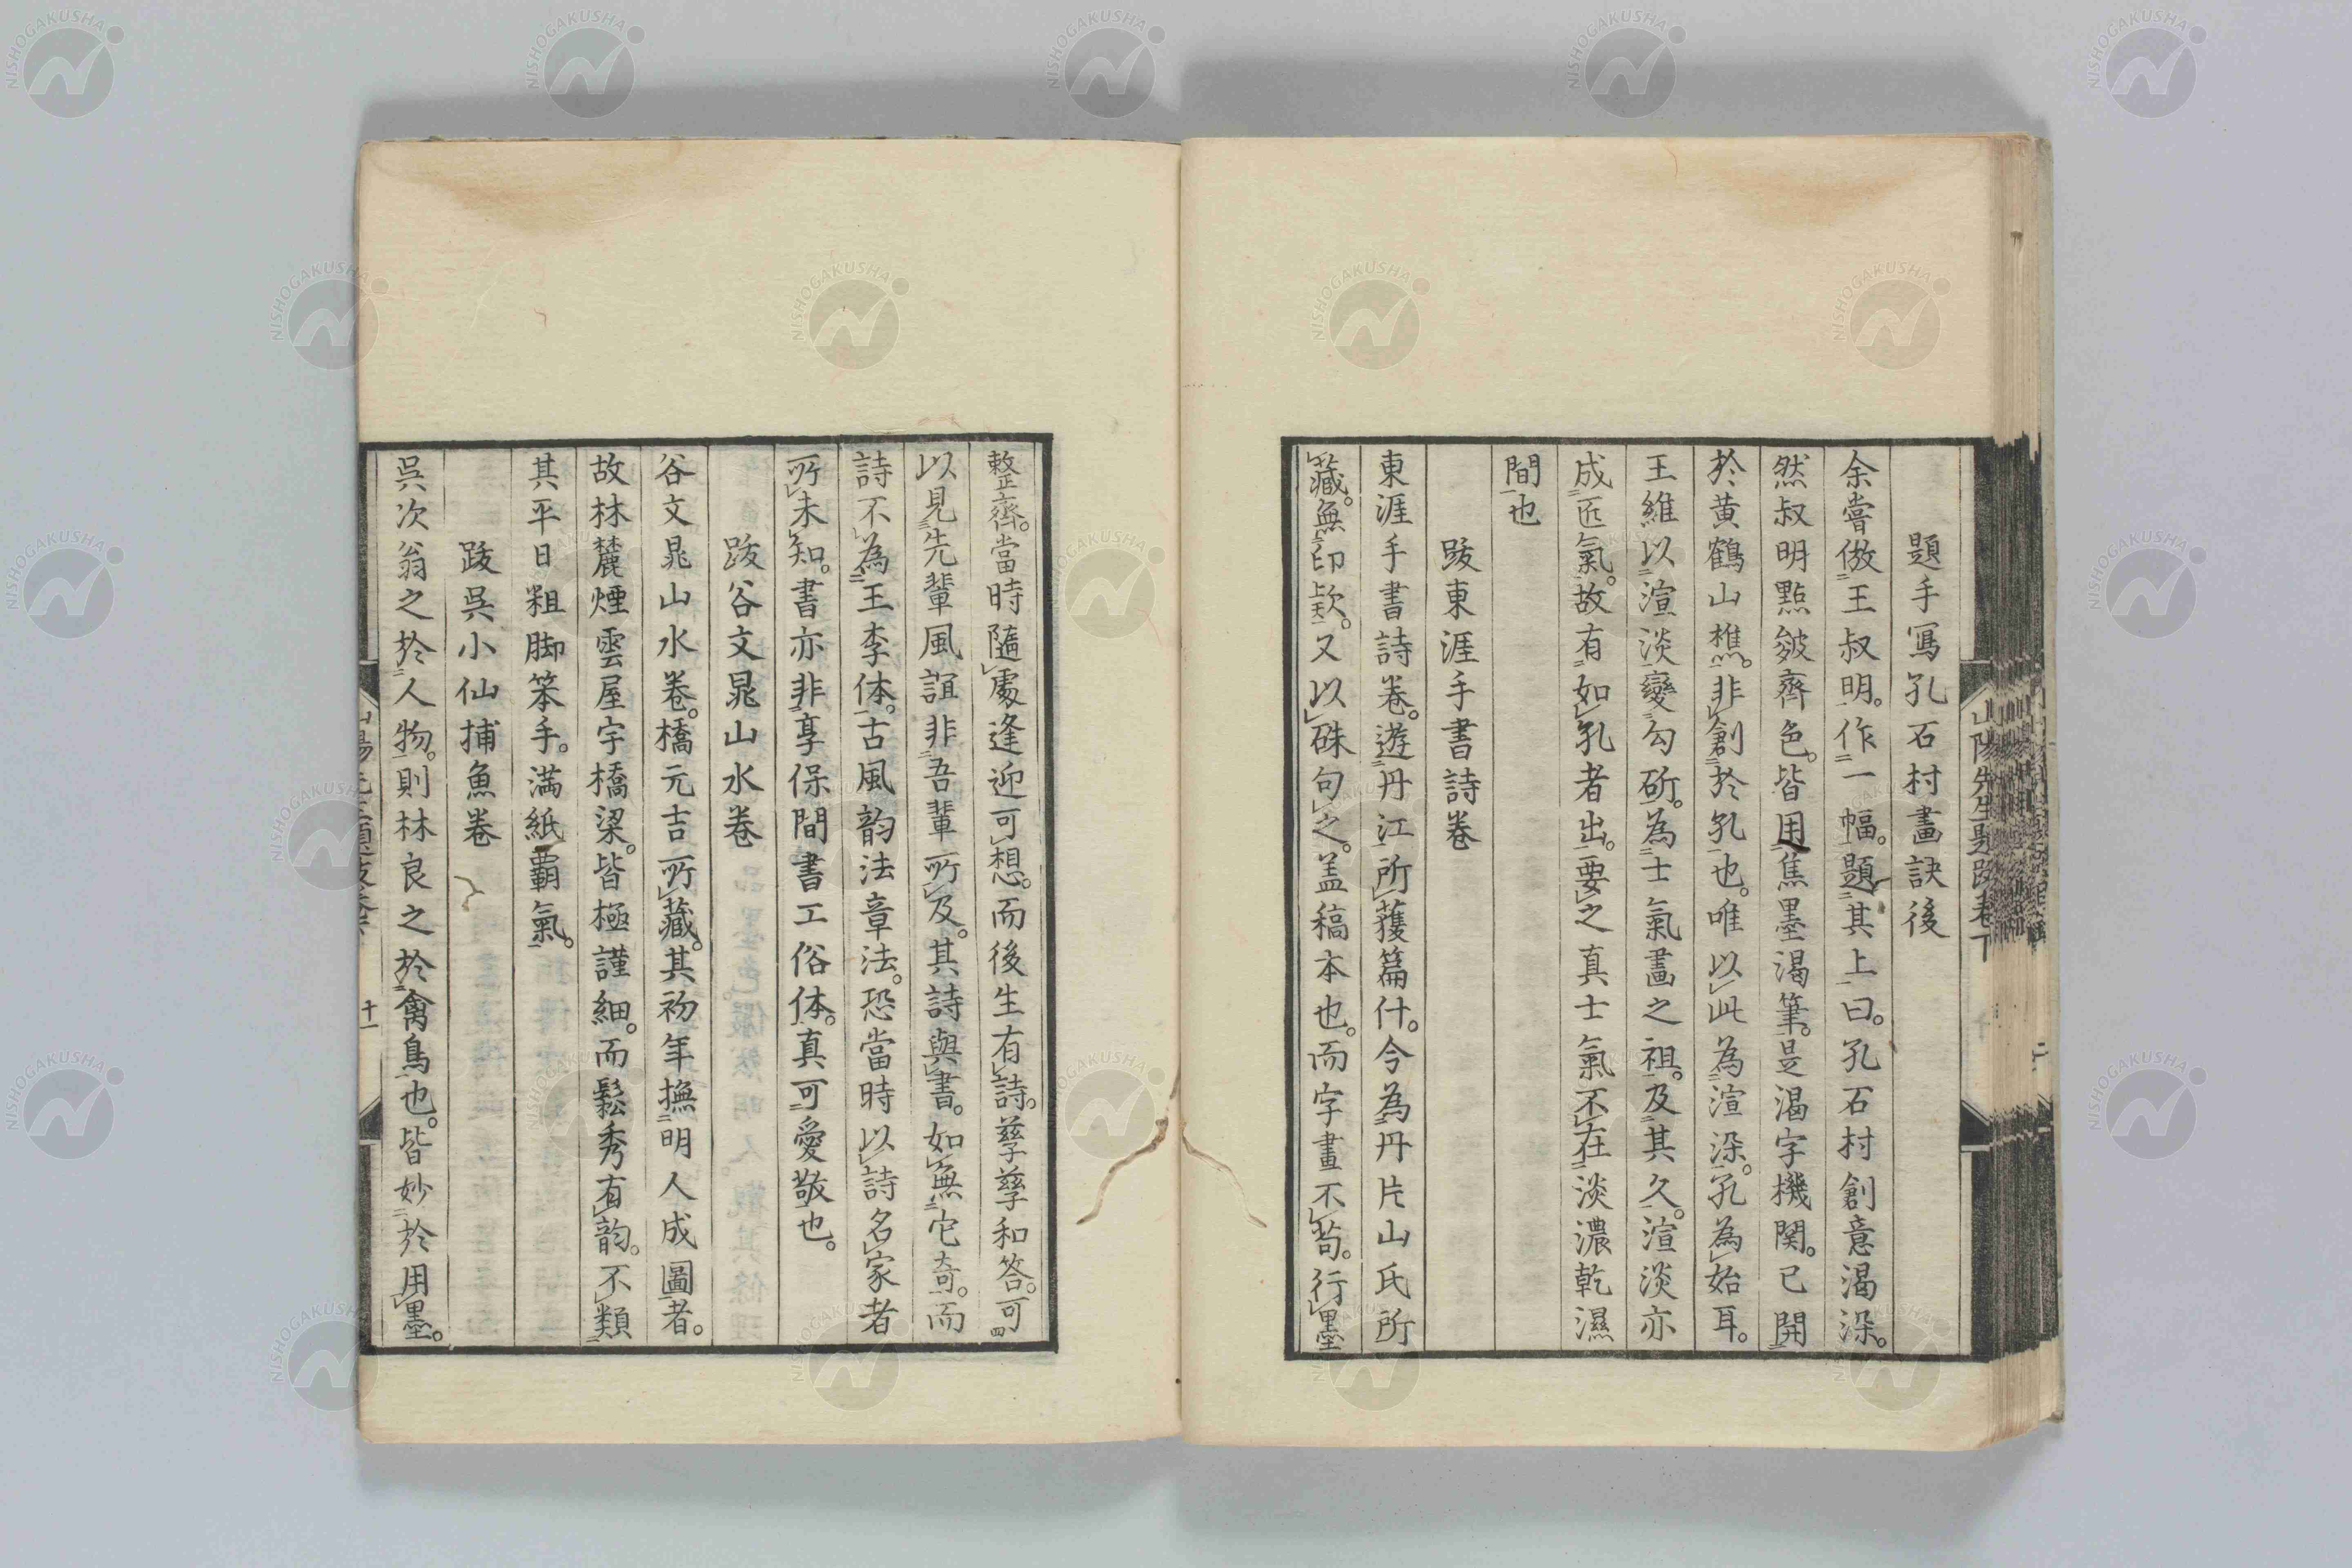 題手寫孔石村畫訣後
余嘗倣王叔明。作一幅。題其上曰。孔石村創意渴染。
然叔明點皴齊色。皆用焦墨渴筆。是渴字機関。已開
於黄鶴山樵。非創於孔也。唯以此為渲染。孔為始耳。
王維以渲淡變勾斫。為士氣畫之祖。及其久。渲淡亦
成匠氣。故有如孔者出。要之真士氣不在淡濃乾濕
間也
跋東涯手書詩卷
東涯手書詩卷。遊丹江所獲篇什。今為丹片山氏所
藏。無印款。又以硃句之。盖稿本也。而字畫不苟。行墨
山陽先生題跋卷下
整齊。當時隨處逢迎可想。而後生有詩。孳孳和答。可
以見先輩風誼非吾輩所及。其詩與書。如無它奇。而
詩不為王李体。古風韵法章法。恐當時以詩名家者
所未知。書亦非享保間書工俗体。真可愛敬也。
跋谷文晁山水卷
谷文晁山水卷。橋元吉所藏。其初年撫明人成圖者。
故林麓煙雲屋宇橋梁。皆極謹細。而鬆秀有韵。不類
其平日粗脚笨手。満紙覇氣。
跋吳小仙捕魚卷
吳次翁之於人物。則林良之於禽鳥也。皆妙於用墨。
十一
NISHOGAKUSHA